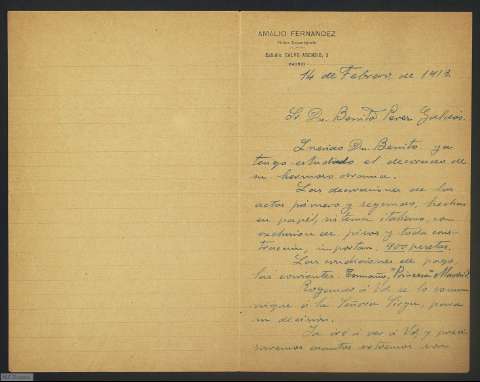 AMALIO FERNÁNDEZ
Pintor Escenógrafo
Estudio: CALVO ASENSIO, 3
MADRID
14 de Febrero de 1913.
Sr Dn. Benito Perez Galdós.
Querido Dn. Benito ya
tengo estudiado el decorado de
su hermoso drama.
Las decoraciones de los
actos primero y segundo, hechas
en papel, sistema italiano, con
exclusion de pisos y toda cons-
trucción, importan 900 pesetas.
Las condiciones de pago,
las corrientes. "Princesa" Madrid
Rogando á Vd. se lo comu-
nique á la Señora Xirgu, para
su decision.
Ya iré á ver á Vd. y preci-
saremos cuantos extremos sean